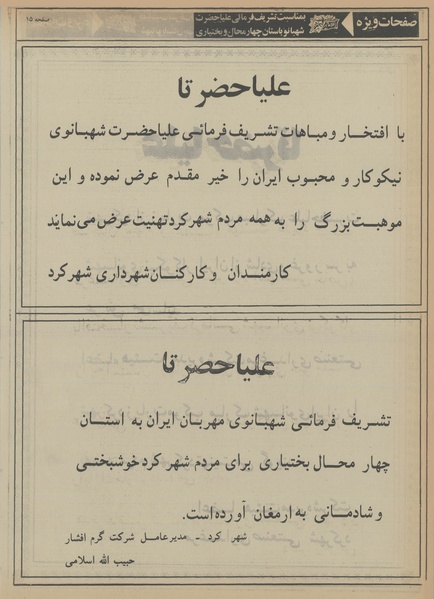 صفحات ویژه
بمناسبت تشریف فرمائی علیاحضرت
شهبانو باستان چهارمحال و بختیاری
صفحه ۱۵
علیاحضرتا
با افتخار و مباهات تشریف فرمائی علیاحضرت شهبانوی
نیکوکار و محبوب ایران را خیر مقدم عرض نموده و این
موهبت بزرگ را به همه مردم شهرکرد تهنیت عرض می‌نماید
کارمندان و کارکنان شهرداری شهرکرد
علیاحضرتا
تشریف فرمائی شهبانوی مهربان ایران به استان
چهار محال بختیاری برای مردم شهر کرد خوشبختی
و شادمانی به ارمغان آورده است.
شهر کرد - مدیر عامل شرکت گرم افشار
حبیب الله اسلامی